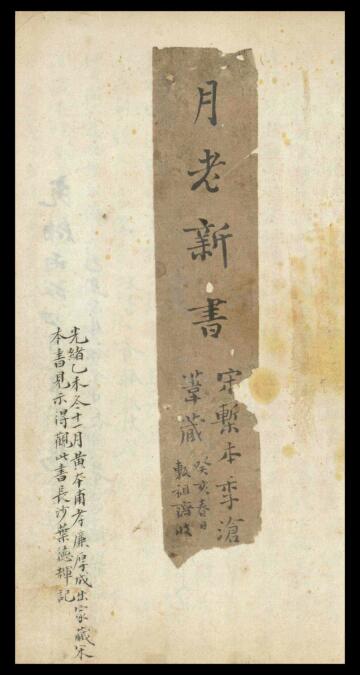 月老新書
宋槧本季滄
葦藏
癸亥春日
光緒乙未冬十一月黃本甫孝廉厚成出家藏宋
本書見示得觀此書長沙葉德輝記